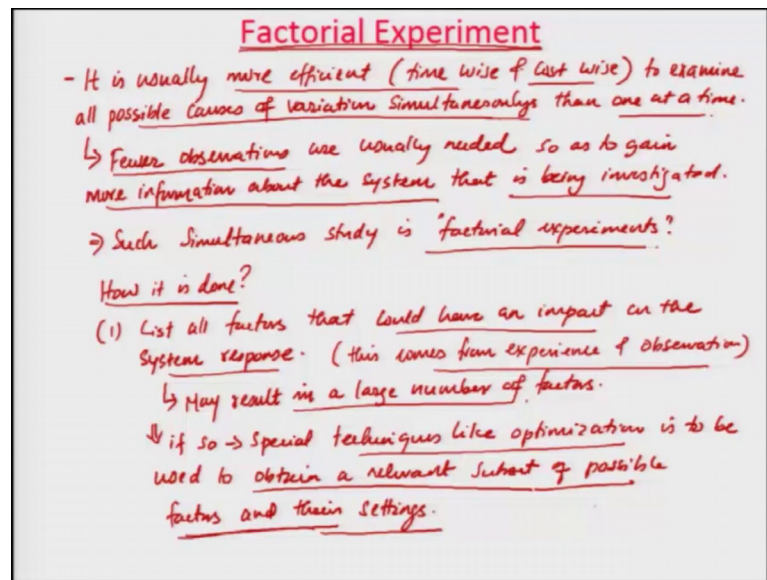 Factorial Experiment
- It is usually more efficient (time wise & cost wise) to examine
all possible causes of variation simultaneously than one at a time.
↳ Fewer observations are usually needed so as to gain
more information about the system that is being investigated.
⇒ Such simultaneous study is "factorial experiments".
How it is done?
(1) List all factors that could have an impact on the
system response. (this comes from experience & observation)
↳ May result in a large number of factors.
⇓ if so → Special techniques like optimization is to be
used to obtain a relevant subset of possible
factors and their settings.